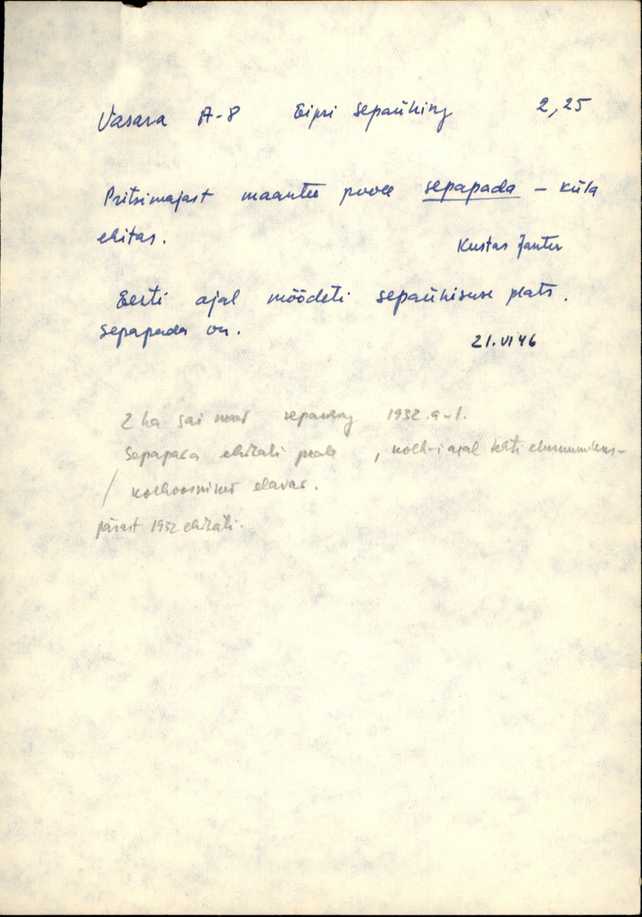 Vasara A-8 Eipri Sepaühing 2,25
Pritsimajast maantee poole sepapada – küla
ehitas.
Kustas Janter
Eesti ajal mõõdeti sepaühisuse plats.
Sepapada on.
21.VI 46
2 ha sai sepaühing 1932.a-l.
Sepapada ehitati peale, kolh-i ajal tehti
kolhoosnikud elavad.
pärast 1932 ehitati.